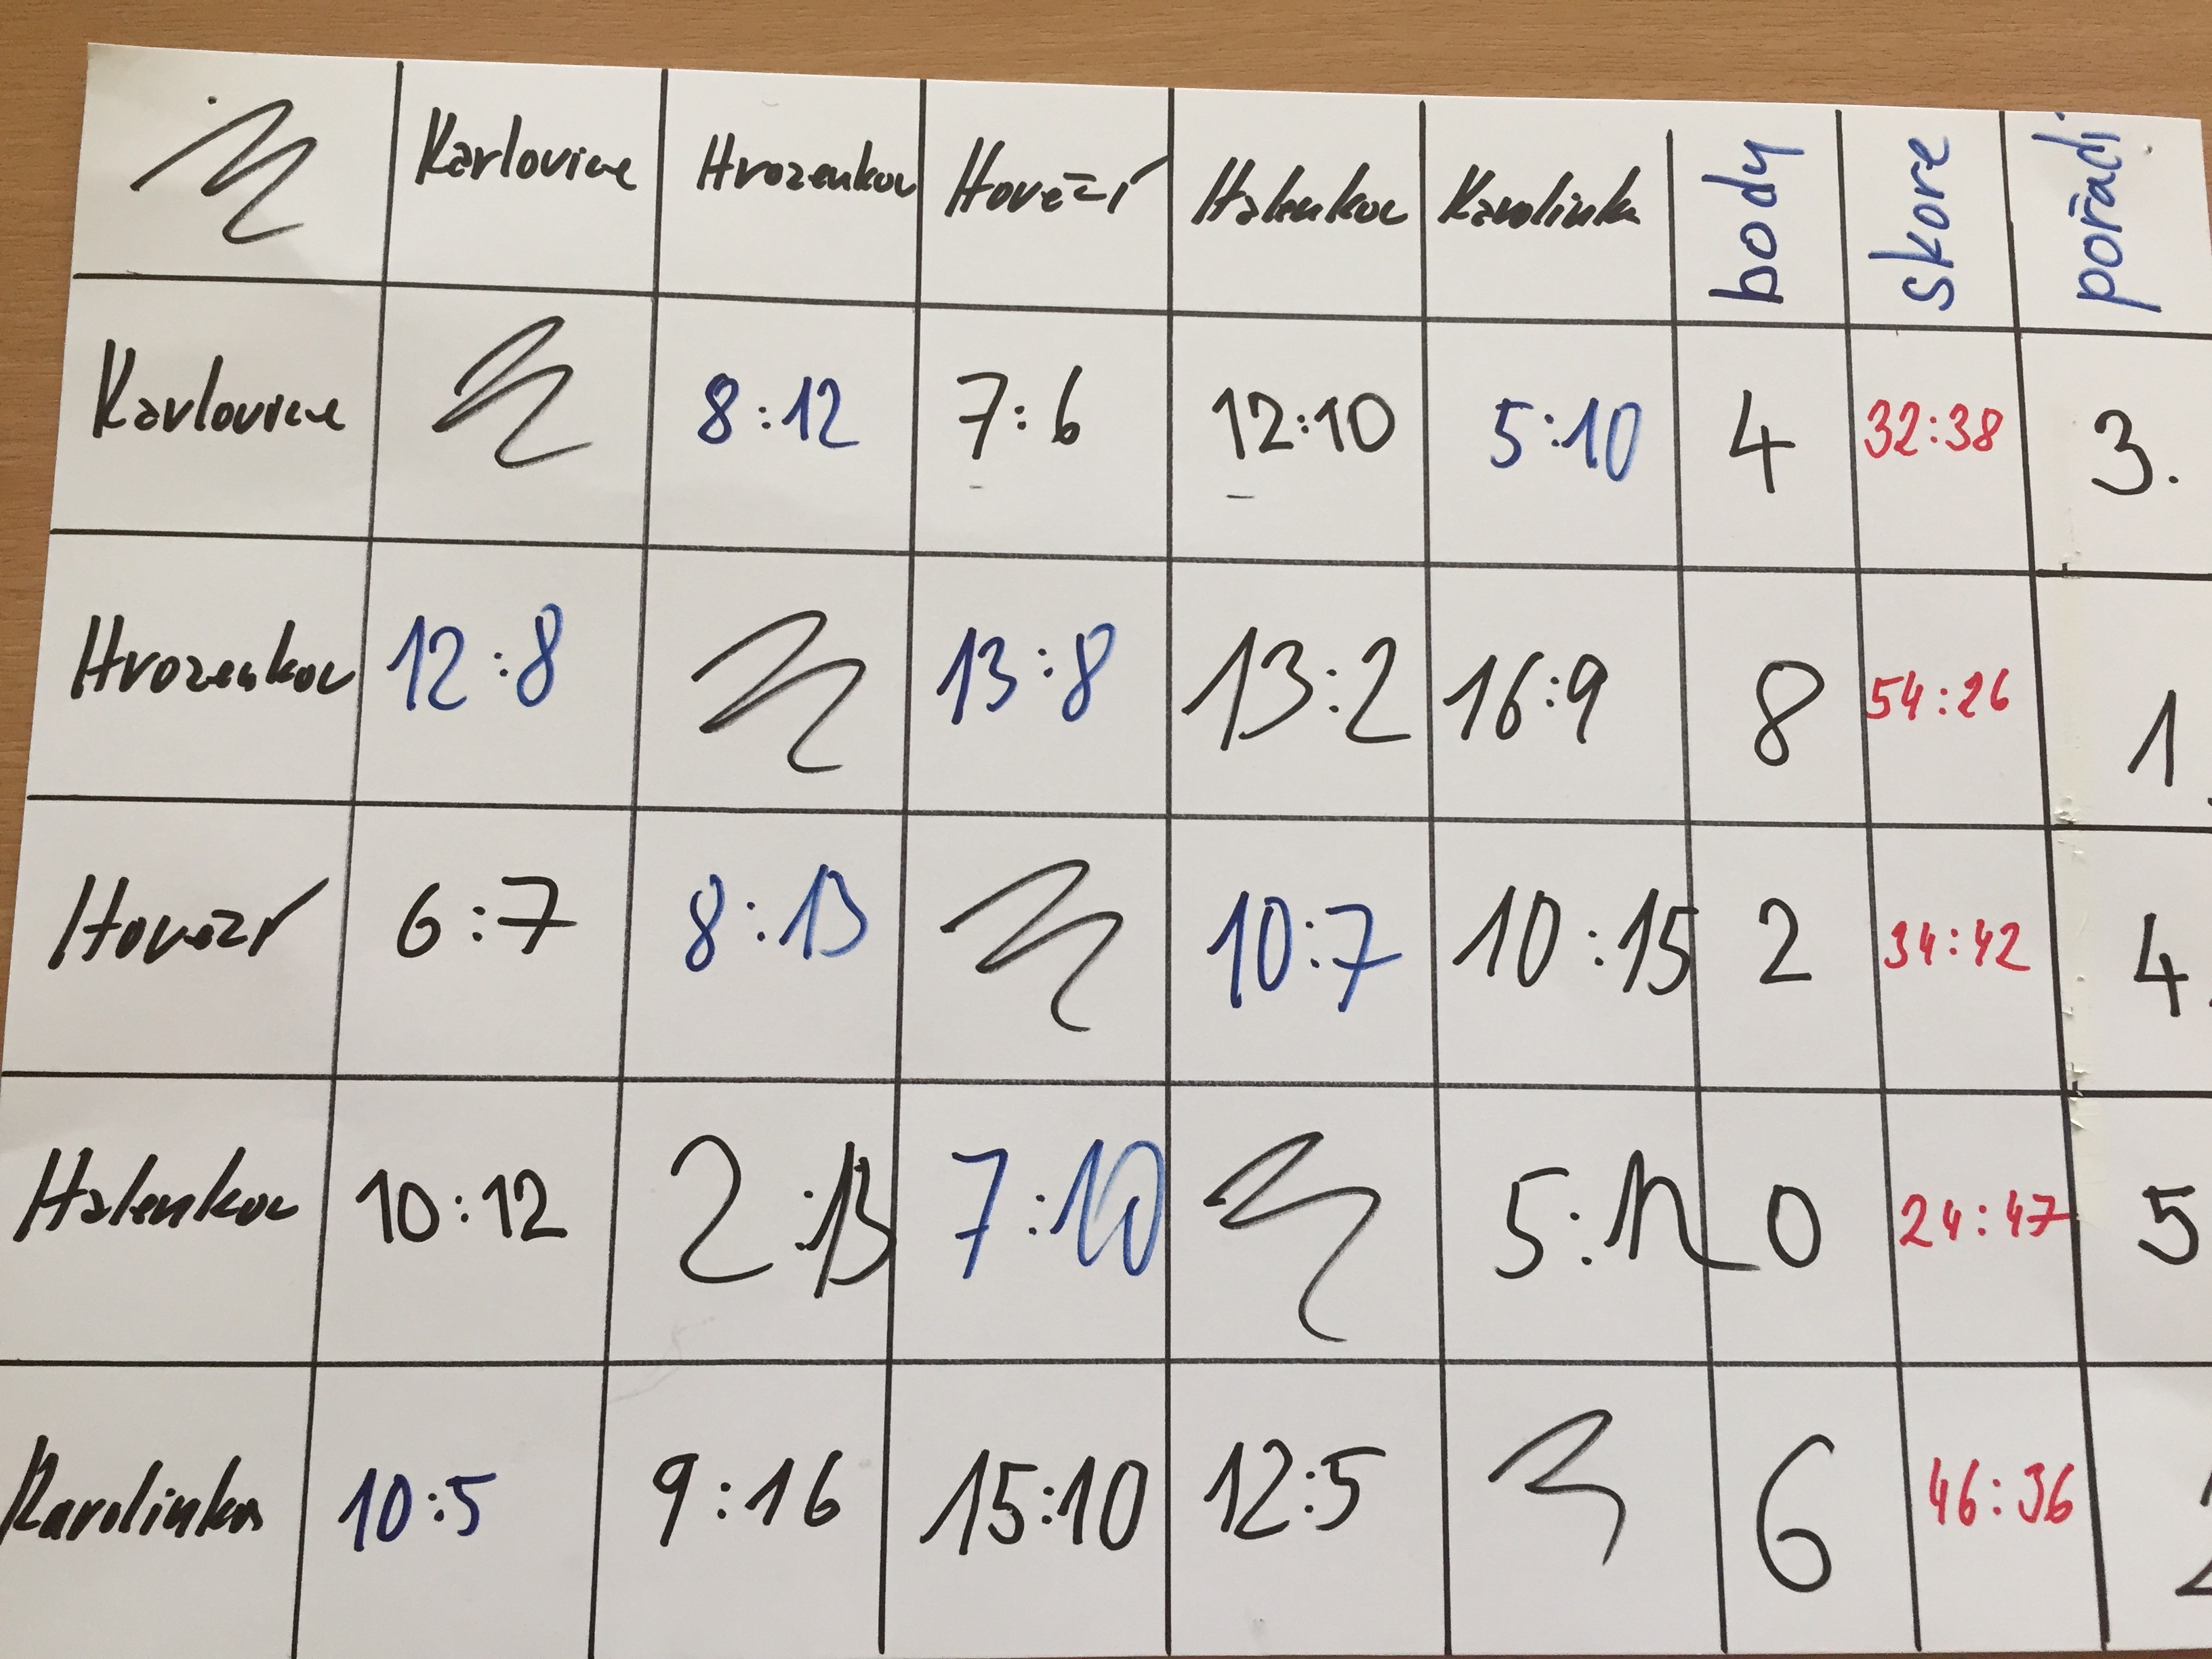 Karlovice Hrozenkov Hovězí Halenkov Karolinka body skore pořadí
Karlovice 8:12 7:6 12:10 5:10 4 32:38 3.
Hrozenkov 12:8 13:8 13:2 16:9 8 54:26 1.
Hovězí 6:7 8:13 10:7 10:15 2 34:42 4.
Halenkov 10:12 2:13 7:10 5:12 0 24:47 5
Karolinka 10:5 9:16 15:10 12:5 6 46:36